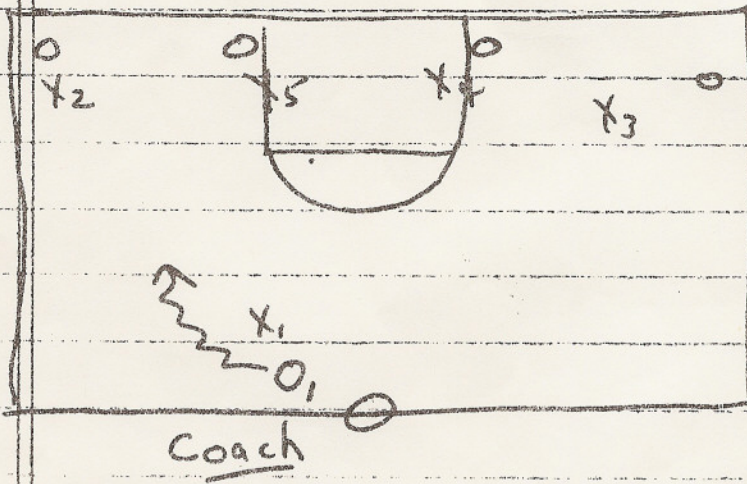 O O O
X2 X5 X4 O
X3
X1
O1
Coach